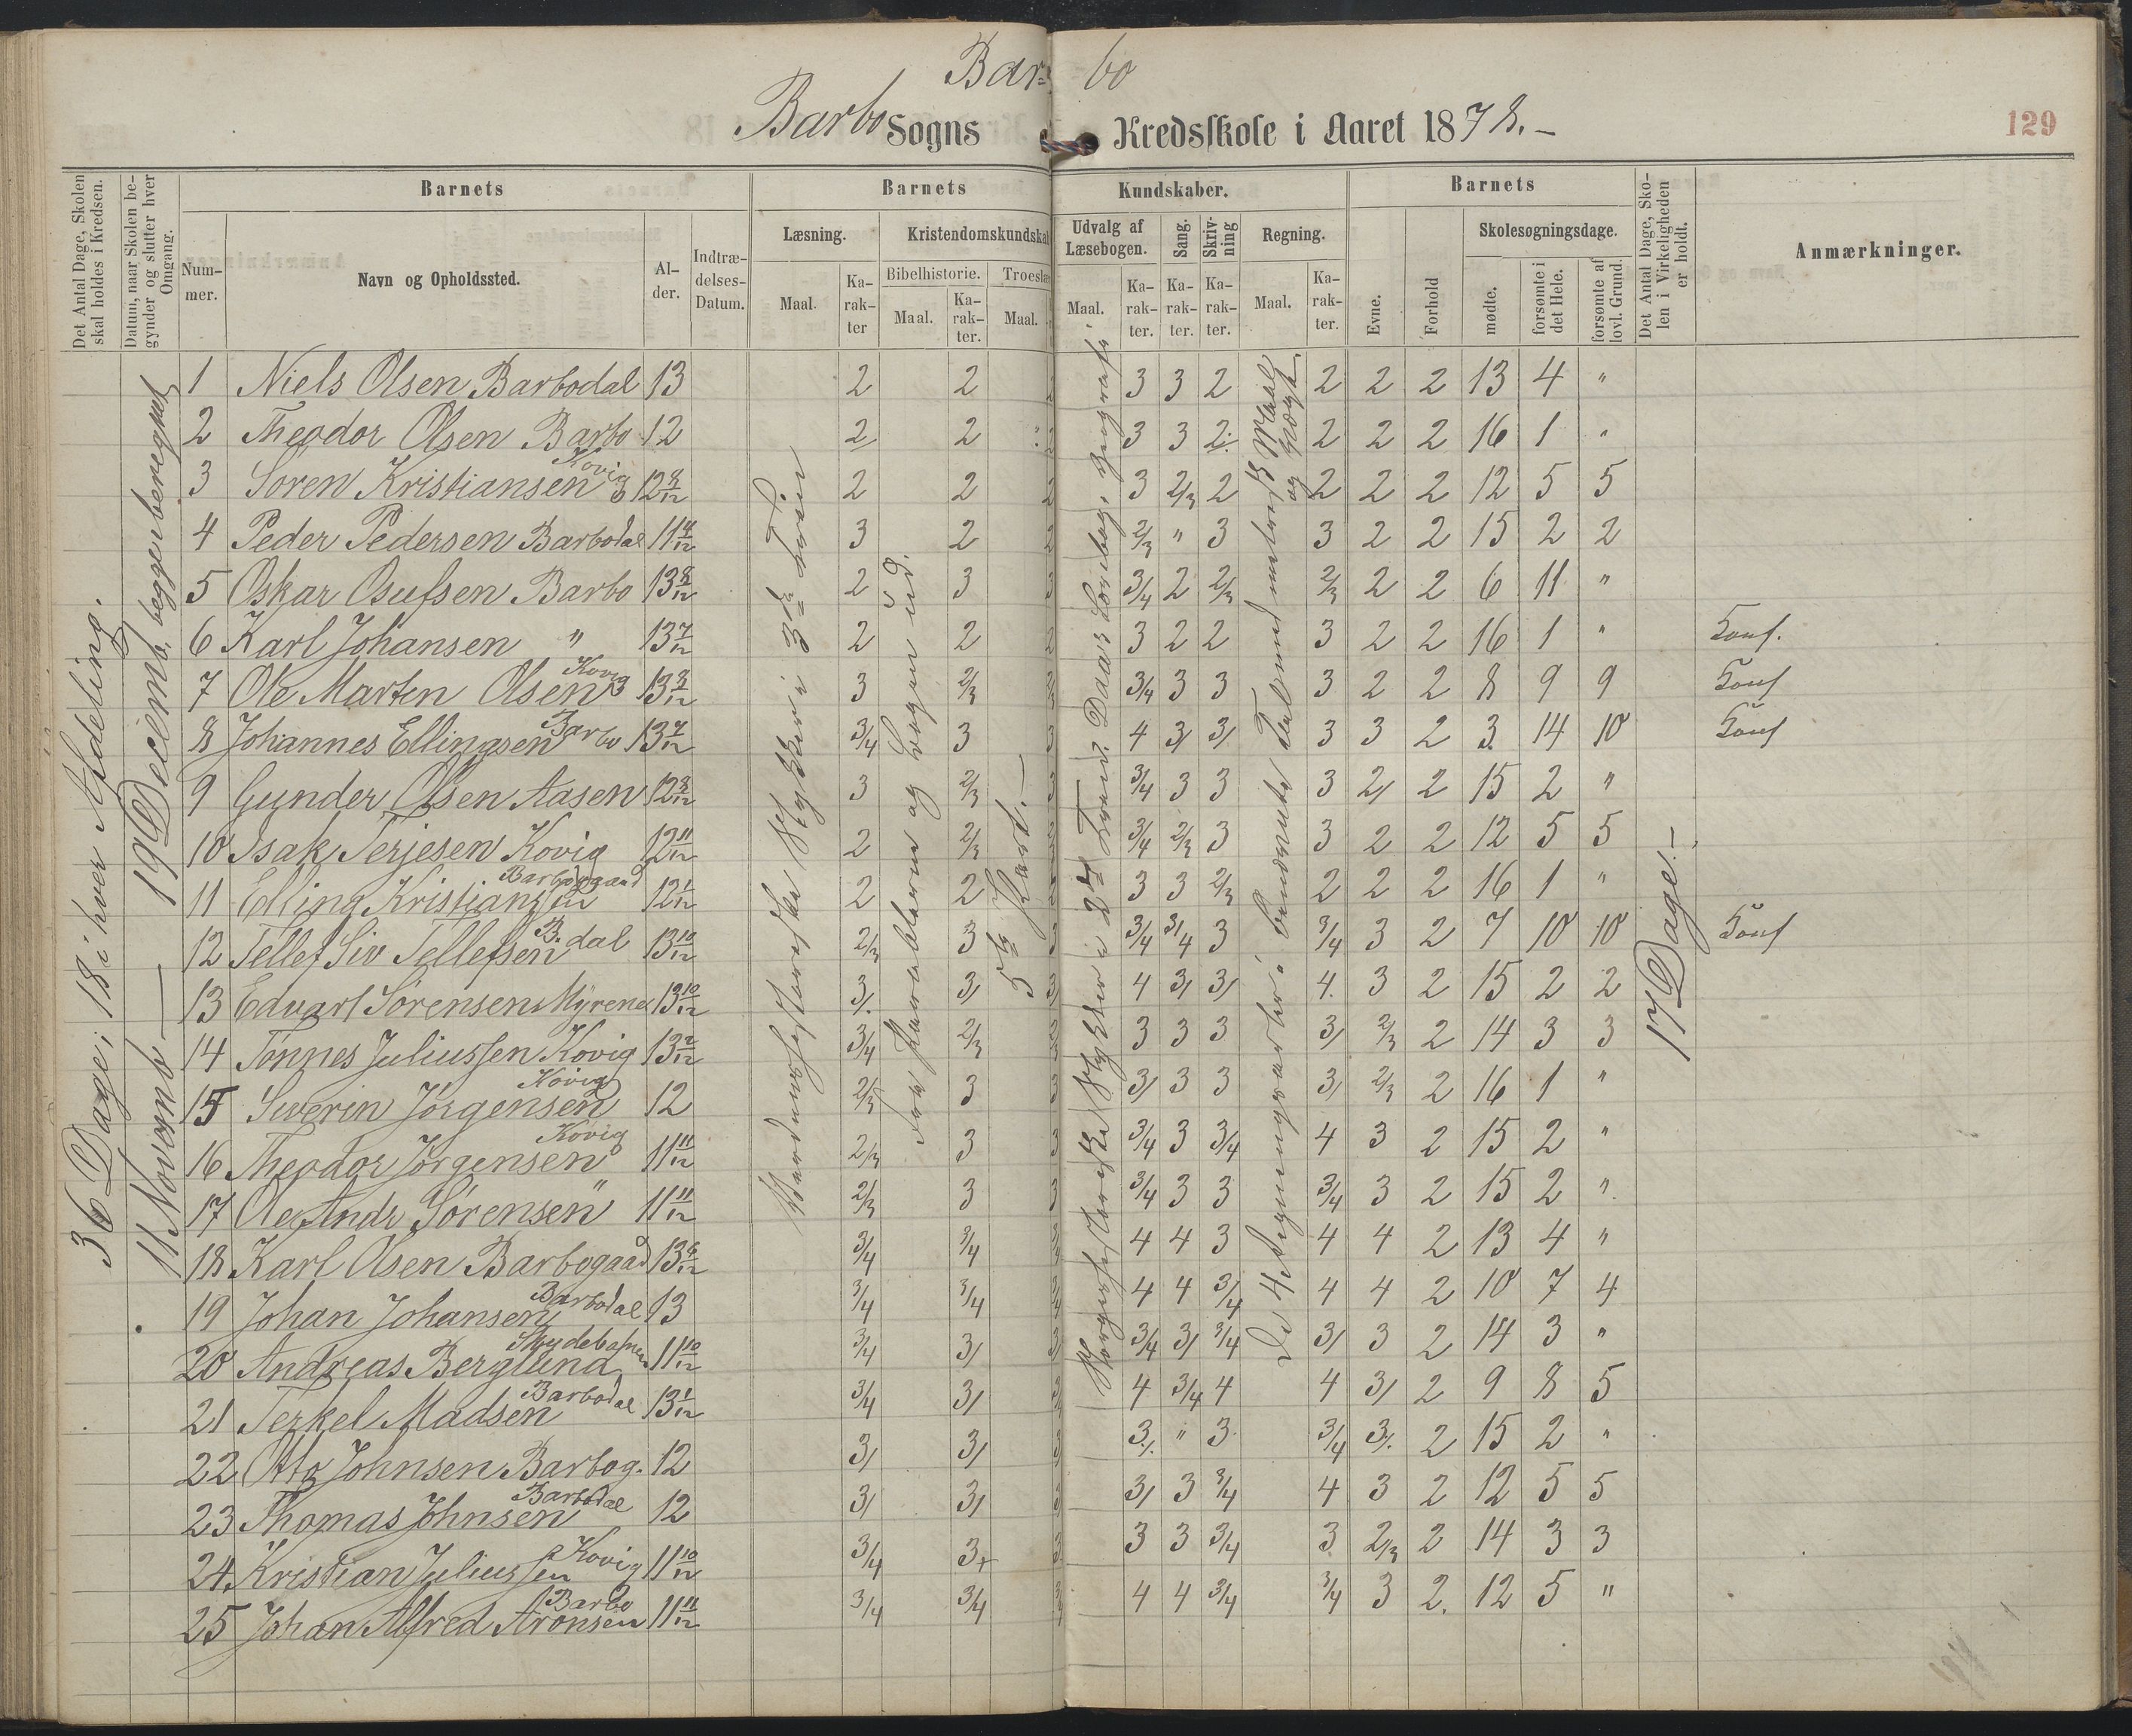 Bar- bo
Barbo Sogns Kredsskole i Aaret 1878.-
129
Det Antal Dage, Skolen skal holdes i Kredsen.
Datum, naar Skolen begynder og slutter hver Omgang.
Barnets
Barnets
Kundskaber.
Barnets
Det Antal Dage, Skolen i Virkeligheden er holdt.
Anmærkninger.
Nummer.
Navn og Opholdssted.
Alder.
Indtrædelses-Datum.
Læsning.
Kristendomskundskab
Udvalg af Læsebogen.
Sang.
Skrivning
Regning.
Evne.
Forhold
Skolesøgningsdage.
Maal.
Karakter
Bibelhistorie.
Troeslære
Maal.
Karakter.
Maal.
Maal.
Karakter.
Karakter.
Karakter.
Maal.
Karakter.
mødte.
forsømte i det Hele.
forsømte af lovl. Grund.
36 Dage; 18 i hver Afdeling.
11 Novemb. — 19 Decemb. begge beregnet
17 Dage.-
1 Niels Olsen Barbodal 13 2 2 3 3 2 2 2 2 13 4 "
2 Theodor Olsen Barbo 12 2 2 3 3 2 2 2 2 16 1 "
3 Søren Kristiansen Kovig 12 8/12 2 2 3 2/3 2 2 2 2 12 5 5
4 Peder Pedersen Barbodal 11 4/12 3 2 2/3 " 3 3 2 2 15 2 2
5 Oskar Osufsen Barbo 13 8/12 2 3 3/4 2 2/3 2/3 2 2 6 11 "
6 Karl Johansen " 13 7/12 2 2 3 2 2 3 2 2 16 1 " Conf.
7 Ole Marten Olsen Kovig 13 3/12 3 2/3 3/4 3 3 3 2 2 8 9 9 Conf
8 Johannes Ellingsen Barbo 13 7/12 3/4 3 4 3/ 3/ 3 3 2 3 14 10 Conf
9 Gunder Olsen Aasen 12 3/12 3 2/3 3/4 3 3 3 2/ 2 15 2 "
10 Isak Terjesen Kovig 12 11/12 2 2/3 3/4 2/3 3 3 2 2 12 5 5
11 Elling Kristiansen Barbogaard 12 1/12 2 2 3 3 2/3 2 2 2 16 1 "
12 Tellef Siv Tellefsen B.dal 13 10/12 2/3 3 3/4 3/4 3 3/4 3 2 7 10 10 Conf
13 Edvart Sørensen Myrene 13 10/12 3/ 3/ 4 3/ 3/ 4. 3 2 15 2 2
14 Tønnes Juliussen Kovig 13 2/12 3/4 2/3 3 3 3 3/ 2/3 2 14 3 3
15 Severin Jørgensen Kovig 12 2/3 3 3/ 3 3 3/ 2/3 2 16 1 "
16 Theodor Jørgensen Kovig 11 11/12 2/3 3 3/4 3 3/4 4 3 2 15 2 "
17 Ole Andr Sørensen " 11 11/12 2/3 3 3/4 3 3 3/4 3 2 15 2 "
18 Karl Olsen Barbogaard 13 6/12 3/4 3/4 4 4 3 4 4 2 13 4 "
19 Johan Johansen Barbodal 13 3/4 3/4 4 4 3/4 4 4 2 10 7 4
20 Andreas Berglund Skydebanen 11 10/12 3/4 3/ 3/4 3/ 3/4 3/ 3 2 14 3 "
21 Terkel Madsen Barbodal 13 1/12 3/4 3/ 4 3/4 4 4 3/ 2 9 8 5
22 Otto Johnsen Barbog. 12 3/ 3/ 3/ " 3 3/4 3/ 2 15 2 "
23 Thomas Johnsen Barbodal 12 3/ 3/ 3/ 3 3/4 4 3 2 12 5 5
24. Kristian Juliussen Kovig 11 10/12 3/4 3+ 3 3 3/4 3 2/3 2 14 3 3
25 Johan Alfred Aronsen Barbo 11 11/12 3/4 3/4 4 4 3/4 3/4 3 2. 12 5 "